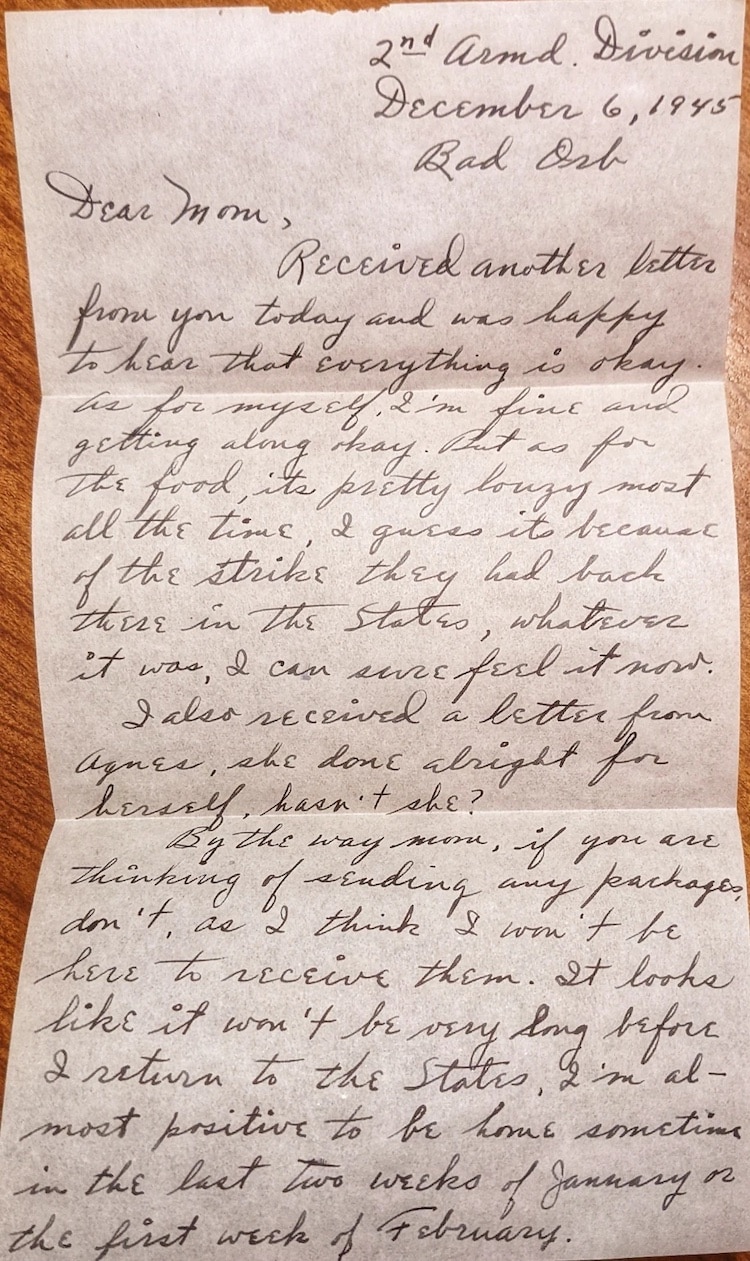 2nd Armd. Division
December 6, 1945
Bad Orb
Dear Mom,
Received another letter
from you today and was happy
to hear that everything is okay.
As for myself, I'm fine and
getting along okay. But as for
the food, its pretty louzy most
all the time, I guess its because
of the strike they had back
there in the States, whatever
it was, I can sure feel it now.
I also received a letter from
Agnes, she done alright for
herself, hasn't she?
By the way mom, if you are
thinking of sending any packages,
don't, as I think I won't be
here to receive them. It looks
like it won't be very long before
I return to the States, I'm al-
most positive to be home sometime
in the last two weeks of January or
the first week of February.